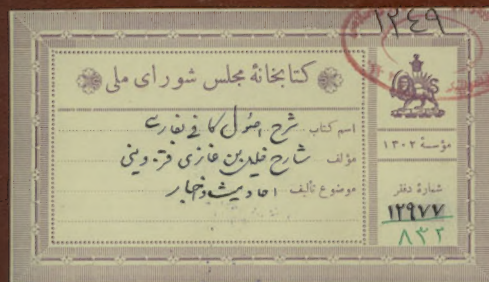 ۱۲۴۹
کتابخانهٔ مجلس شورای ملی
اسم کتاب شرح اصول کافی بفارسی
مؤلف شارح خلیل بن غازی قزوینی
موضوع تألیف احادیث و اخبار
مؤسسهٔ ۱۳۰۲
شمارهٔ دفتر
۱۲۹۷۷
۸۳۲